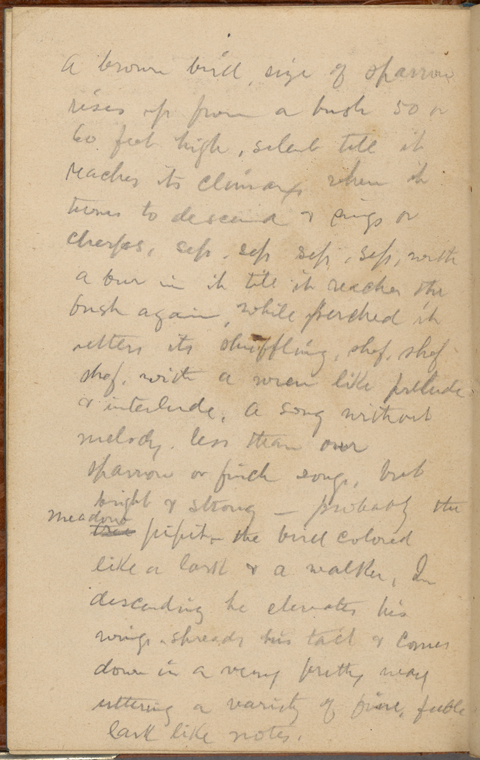 A brown bird, size of sparrow
rises up from a bush 50 or
60 feet high, silent till it
reaches its climax when it
turns to descend & sings or
cherps, sep, sep sep, sep, with
a burr in it till it reaches the
bush again, while perched it
utters its shuffling, shef, shef
shef, with a wren like prelude
& interlude. A song without
melody. less than our
sparrow or finch songs, but
bright & strong — probably the
meadow
tree pipit — the bird colored
like a lark & a walker, In
descending he elevates his
wings spreads his tail & comes
down in a very pretty way
uttering a variety of fine, feeble
lark like notes.